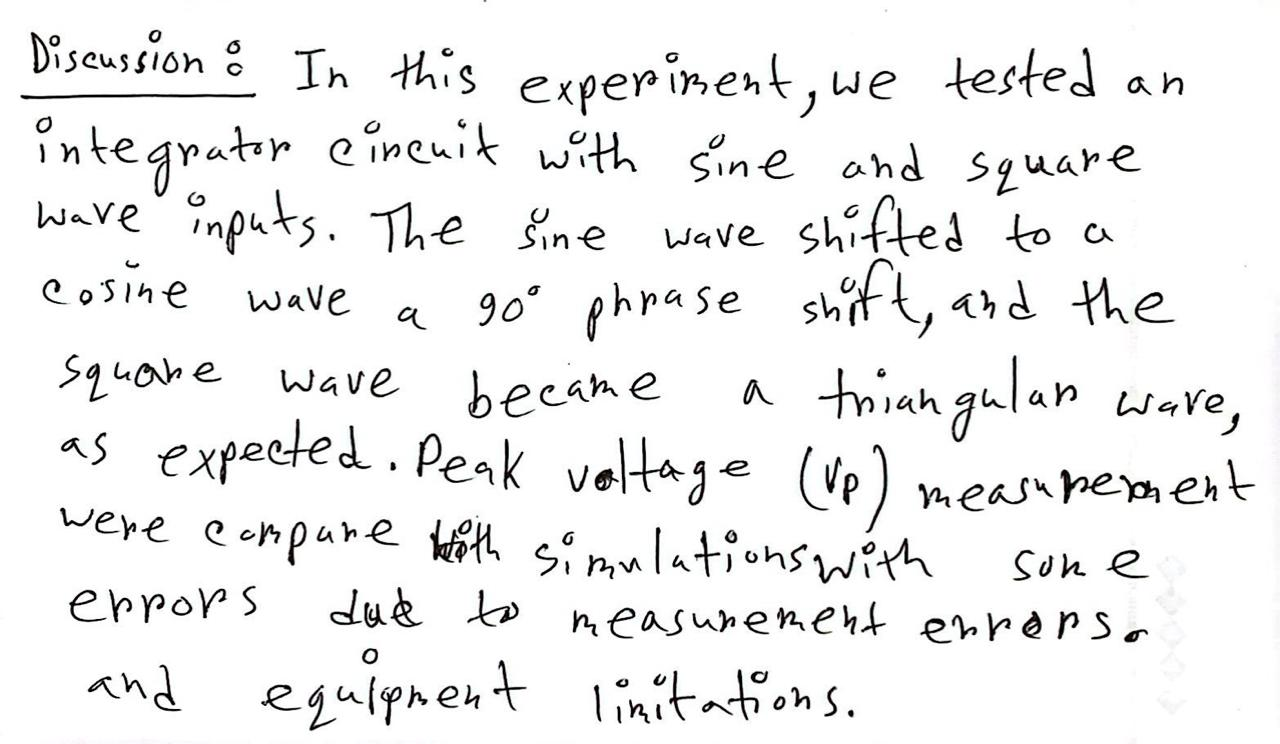 Discussion : In this experiment, we tested an
integrator circuit with sine and square
wave inputs. The sine wave shifted to a
cosine wave a 90° phrase shift, and the
square wave became a triangular wave,
as expected. Peak voltage (Vp) measurement
were compare with simulations with some
errors due to measurement errors.
and equipment limitations.